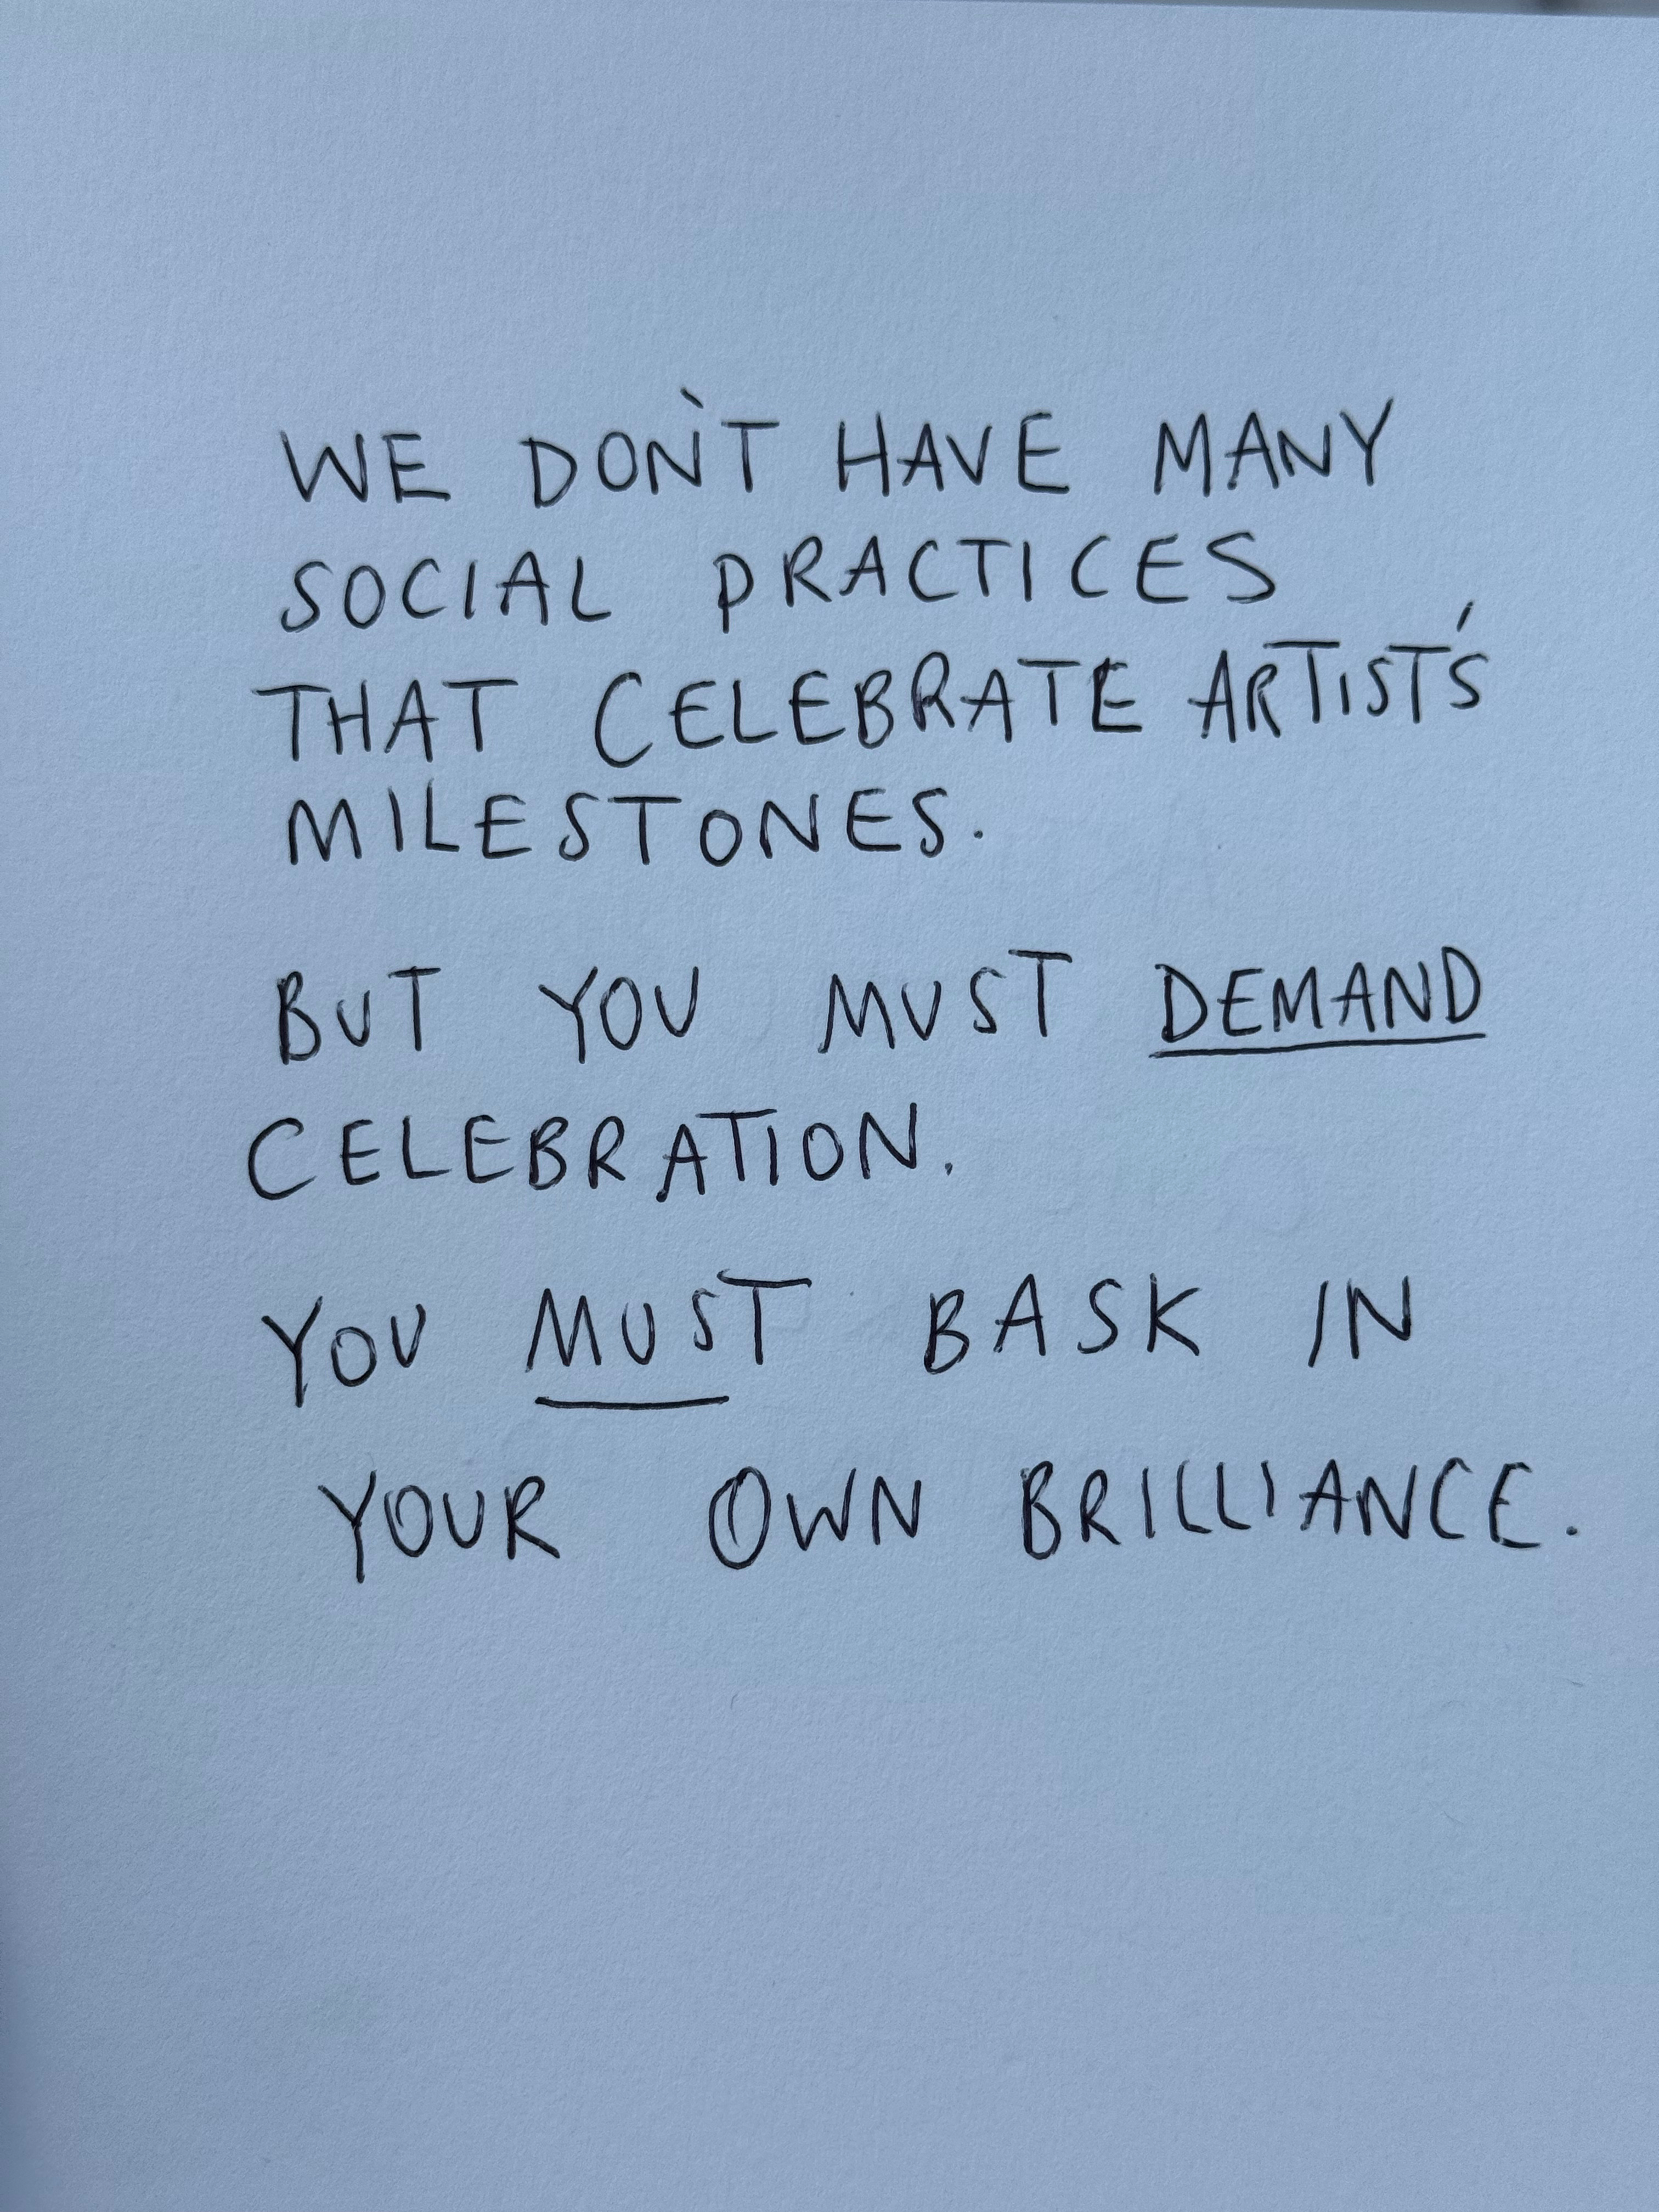 WE DON'T HAVE MANY
SOCIAL PRACTICES
THAT CELEBRATE ARTIST'S
MILESTONES.
BUT YOU MUST DEMAND
CELEBRATION.
YOU MUST BASK IN
YOUR OWN BRILLIANCE.